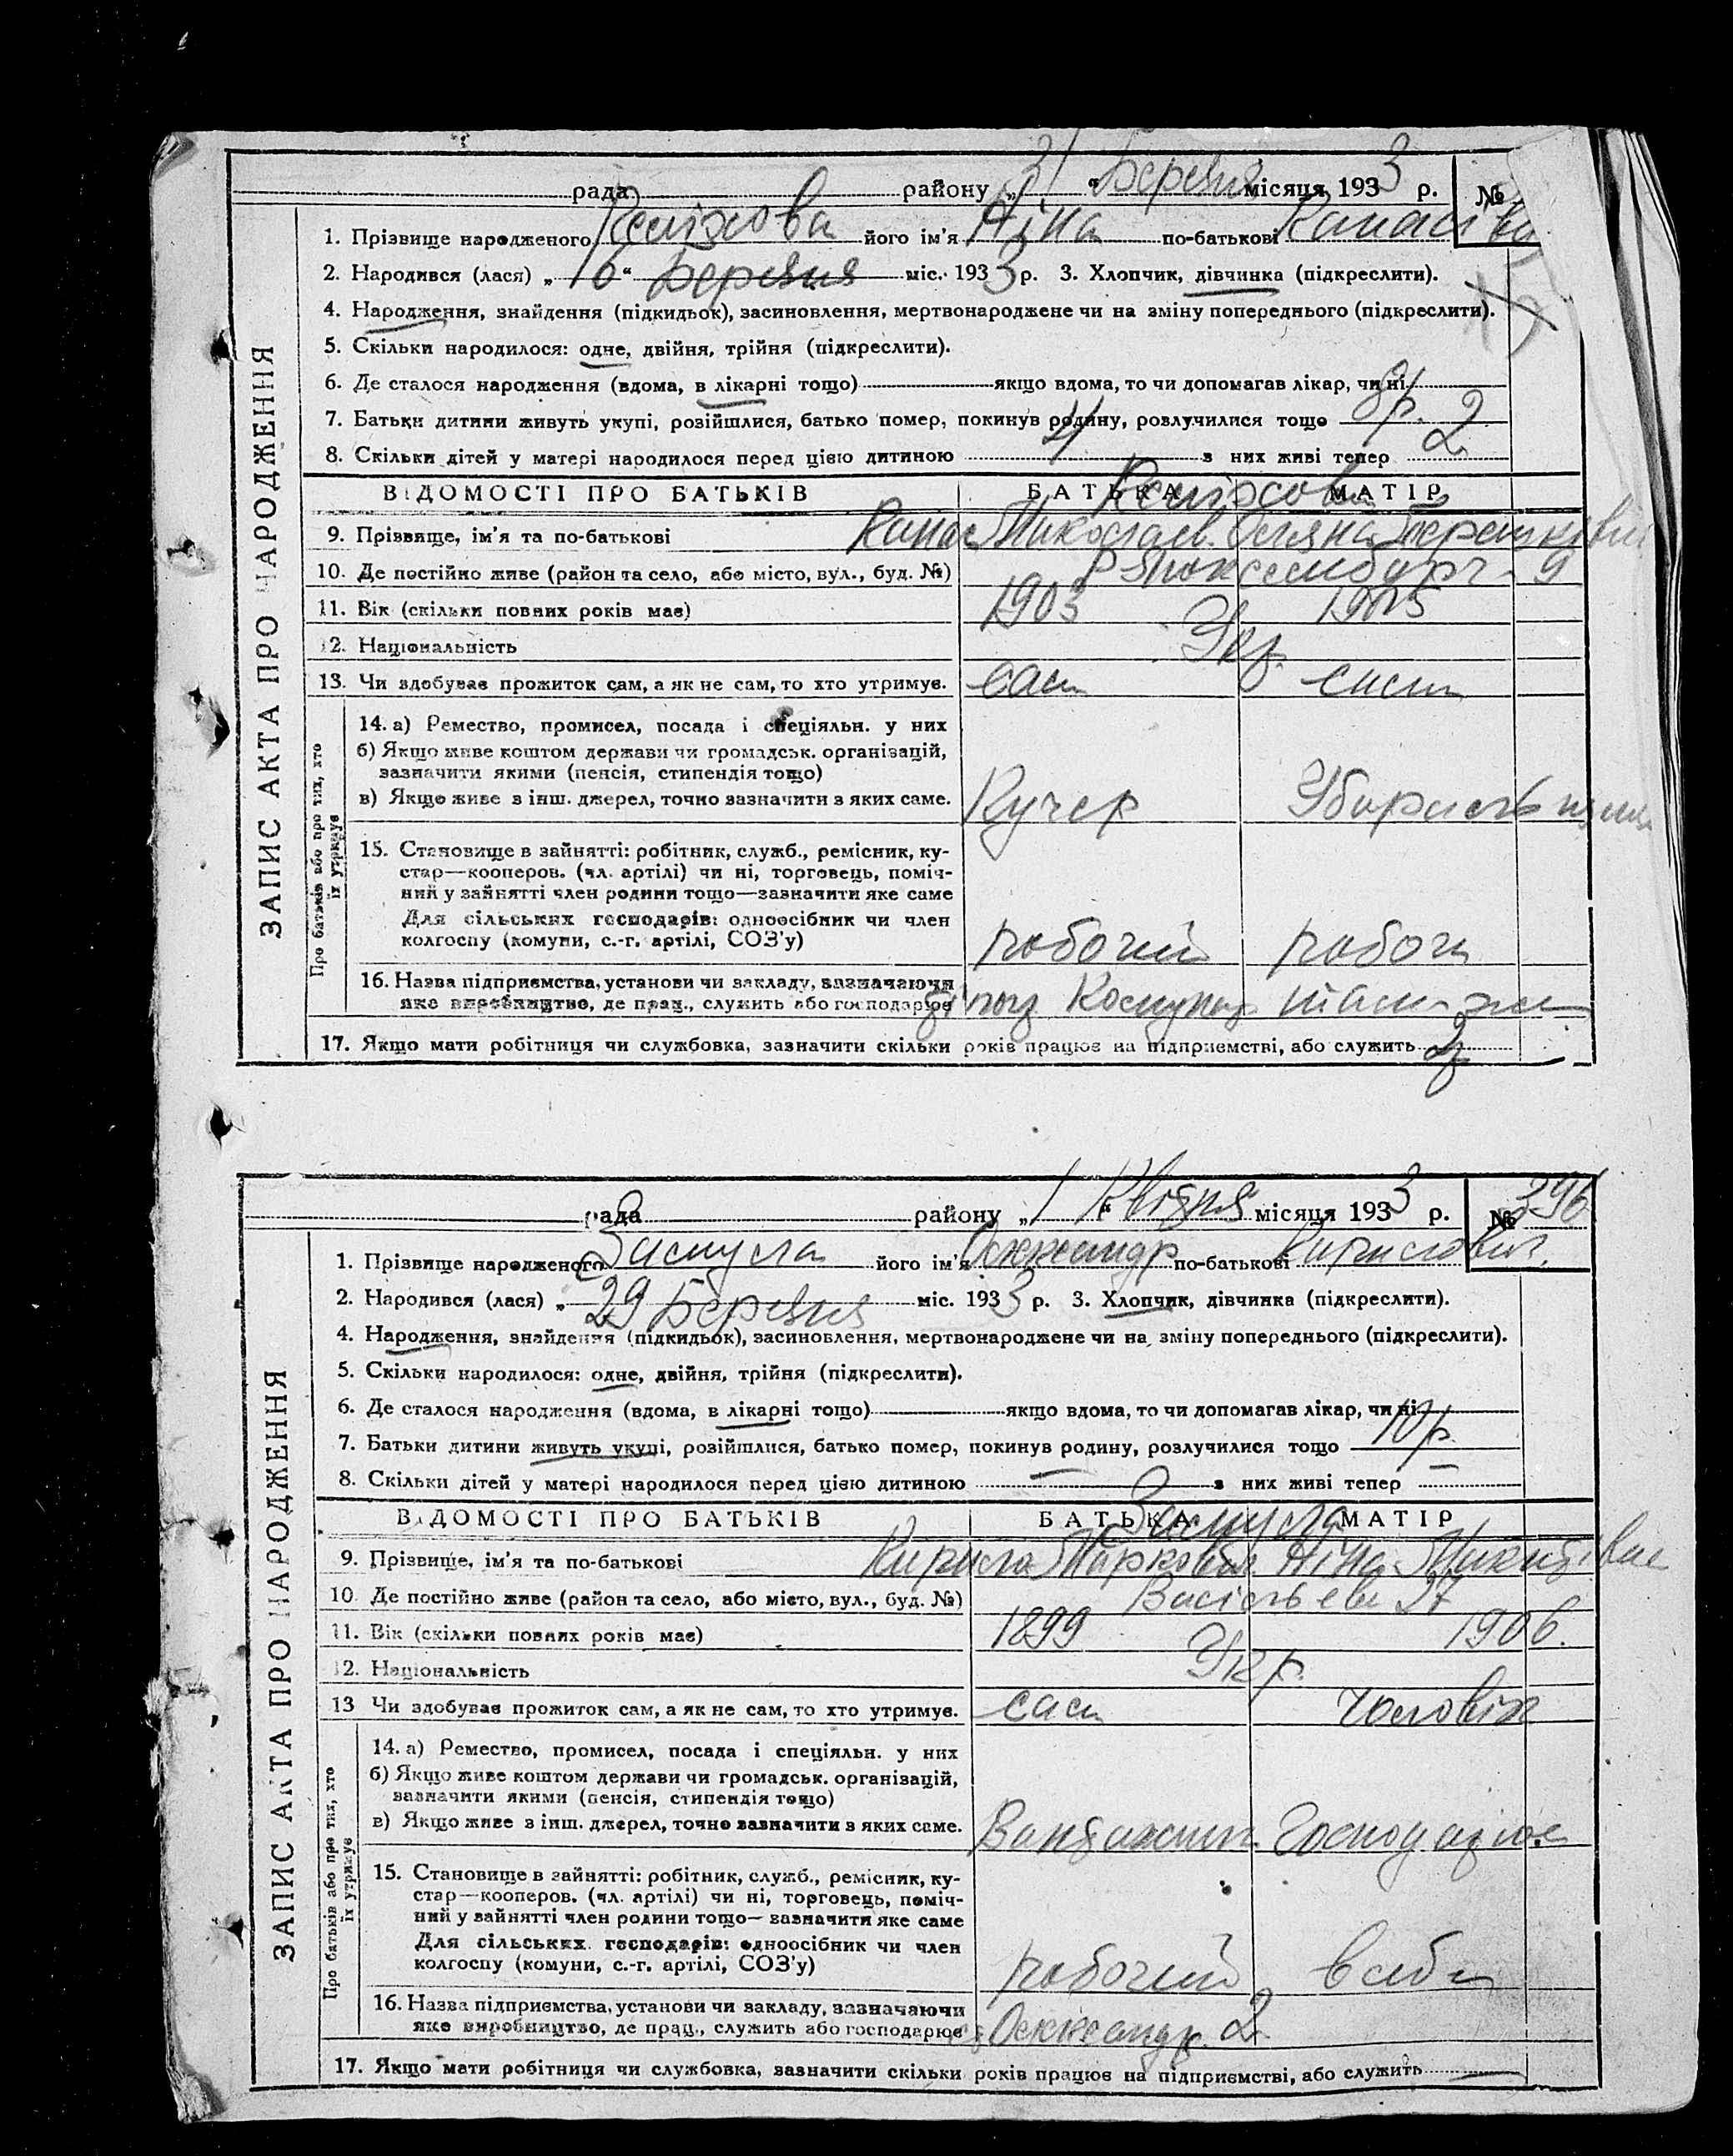 рада району „31“ Березня місяця 1933 р. №
1. Прізвище народженого його ім'я Ніна по-батькові
2. Народився (лася) „16“ Березня міс. 1933 р. 3. Хлопчик, дівчинка (підкреслити).
4. Народження, знайдення (підкидьок), засиновлення, мертвонароджене чи на зміну попереднього (підкреслити).
5. Скільки народилося: одне, двійня, трійня (підкреслити).
6. Де сталося народження (вдома, в лікарні тощо) якщо вдома, то чи допомагав лікар, чи ні
7. Батьки дитини живуть укупі, розійшлися, батько помер, покинув родину, розлучилися тощо 8 р.
8. Скільки дітей у матері народилося перед цією дитиною 4 з них живі тепер 2
ВІДОМОСТІ ПРО БАТЬКІВ БАТЬКА МАТІР
9. Прізвище, ім'я та по-батькові Миколаєв.
10. Де постійно живе (район та село, або місто, вул., буд. №) Р Люксембург 9
11. Вік (скільки повних років має) 1903 1905
12. Національність Укр.
13. Чи здобуває прожиток сам, а як не сам, то хто утримує. сам сама
ЗАПИС АКТА ПРО НАРОДЖЕННЯ
Про батьків або про тих, хто їх утримує
14. а) Ремество, промисел, посада і спеціяльн. у них
б) Якщо живе коштом держави чи громадськ. організацій,
зазначити якими (пенсія, стипендія тощо)
в) Якщо живе з інш. джерел, точно зазначити з яких саме. Кучер Уборильниця
15. Становище в зайнятті: робітник, служб., ремісник, ку-
стар—кооперов. (чл. артілі) чи ні, торговець, поміч-
ний у зайнятті член родини тощо—зазначити яке саме
Для сільських господарів: одноосібник чи член
колгоспу (комуни, с.-г. артілі, СОЗ'у) робочий робоч
16. Назва підприємства, установи чи закладу, зазначаючи
яке виробництво, де прац., служить або господарює Комунар там-же
17. Якщо мати робітниця чи службовка, зазначити скільки років працює на підприємстві, або служить
рада району „1“ Квітня місяця 1933 р. № 396
1. Прізвище народженого Замула його ім'я Олександр по-батькові Кирилович.
2. Народився (лася) „29 Березня міс. 1933 р. 3. Хлопчик, дівчинка (підкреслити).
4. Народження, знайдення (підкидьок), засиновлення, мертвонароджене чи на зміну попереднього (підкреслити).
5. Скільки народилося: одне, двійня, трійня (підкреслити).
6. Де сталося народження (вдома, в лікарні тощо) якщо вдома, то чи допомагав лікар, чи ні
7. Батьки дитини живуть укупі, розійшлися, батько помер, покинув родину, розлучилися тощо 10 р.
8. Скільки дітей у матері народилося перед цією дитиною — з них живі тепер —
ВІДОМОСТІ ПРО БАТЬКІВ БАТЬКА МАТІР
Замула
9. Прізвище, ім'я та по-батькові Кирило Маркович Ніна Микитівна
10. Де постійно живе (район та село, або місто, вул., буд. №) Васільева 27
11. Вік (скільки повних років має) 1899 1906.
12. Національність Укр.
13 Чи здобуває прожиток сам, а як не сам, то хто утримує. сам чоловік
ЗАПИС АКТА ПРО НАРОДЖЕННЯ
Про батьків або про тих, хто їх утримує
14. а) Ремество, промисел, посада і спеціяльн. у них
б) Якщо живе коштом держави чи громадськ. організацій,
зазначити якими (пенсія, стипендія тощо)
в) Якщо живе з інш. джерел, точно зазначити з яких саме. Вантажник Господарює
15. Становище в зайнятті: робітник, служб., ремісник, ку-
стар—кооперов. (чл. артілі) чи ні, торговець, поміч-
ний у зайнятті член родини тощо—зазначити яке саме
Для сільських господарів: одноосібник чи член
колгоспу (комуни, с.-г. артілі, СОЗ'у) робочий
16. Назва підприємства, установи чи закладу, зазначаючи
яке виробництво, де прац., служить або господарює Олександр. 2
17. Якщо мати робітниця чи службовка, зазначити скільки років працює на підприємстві, або служить —